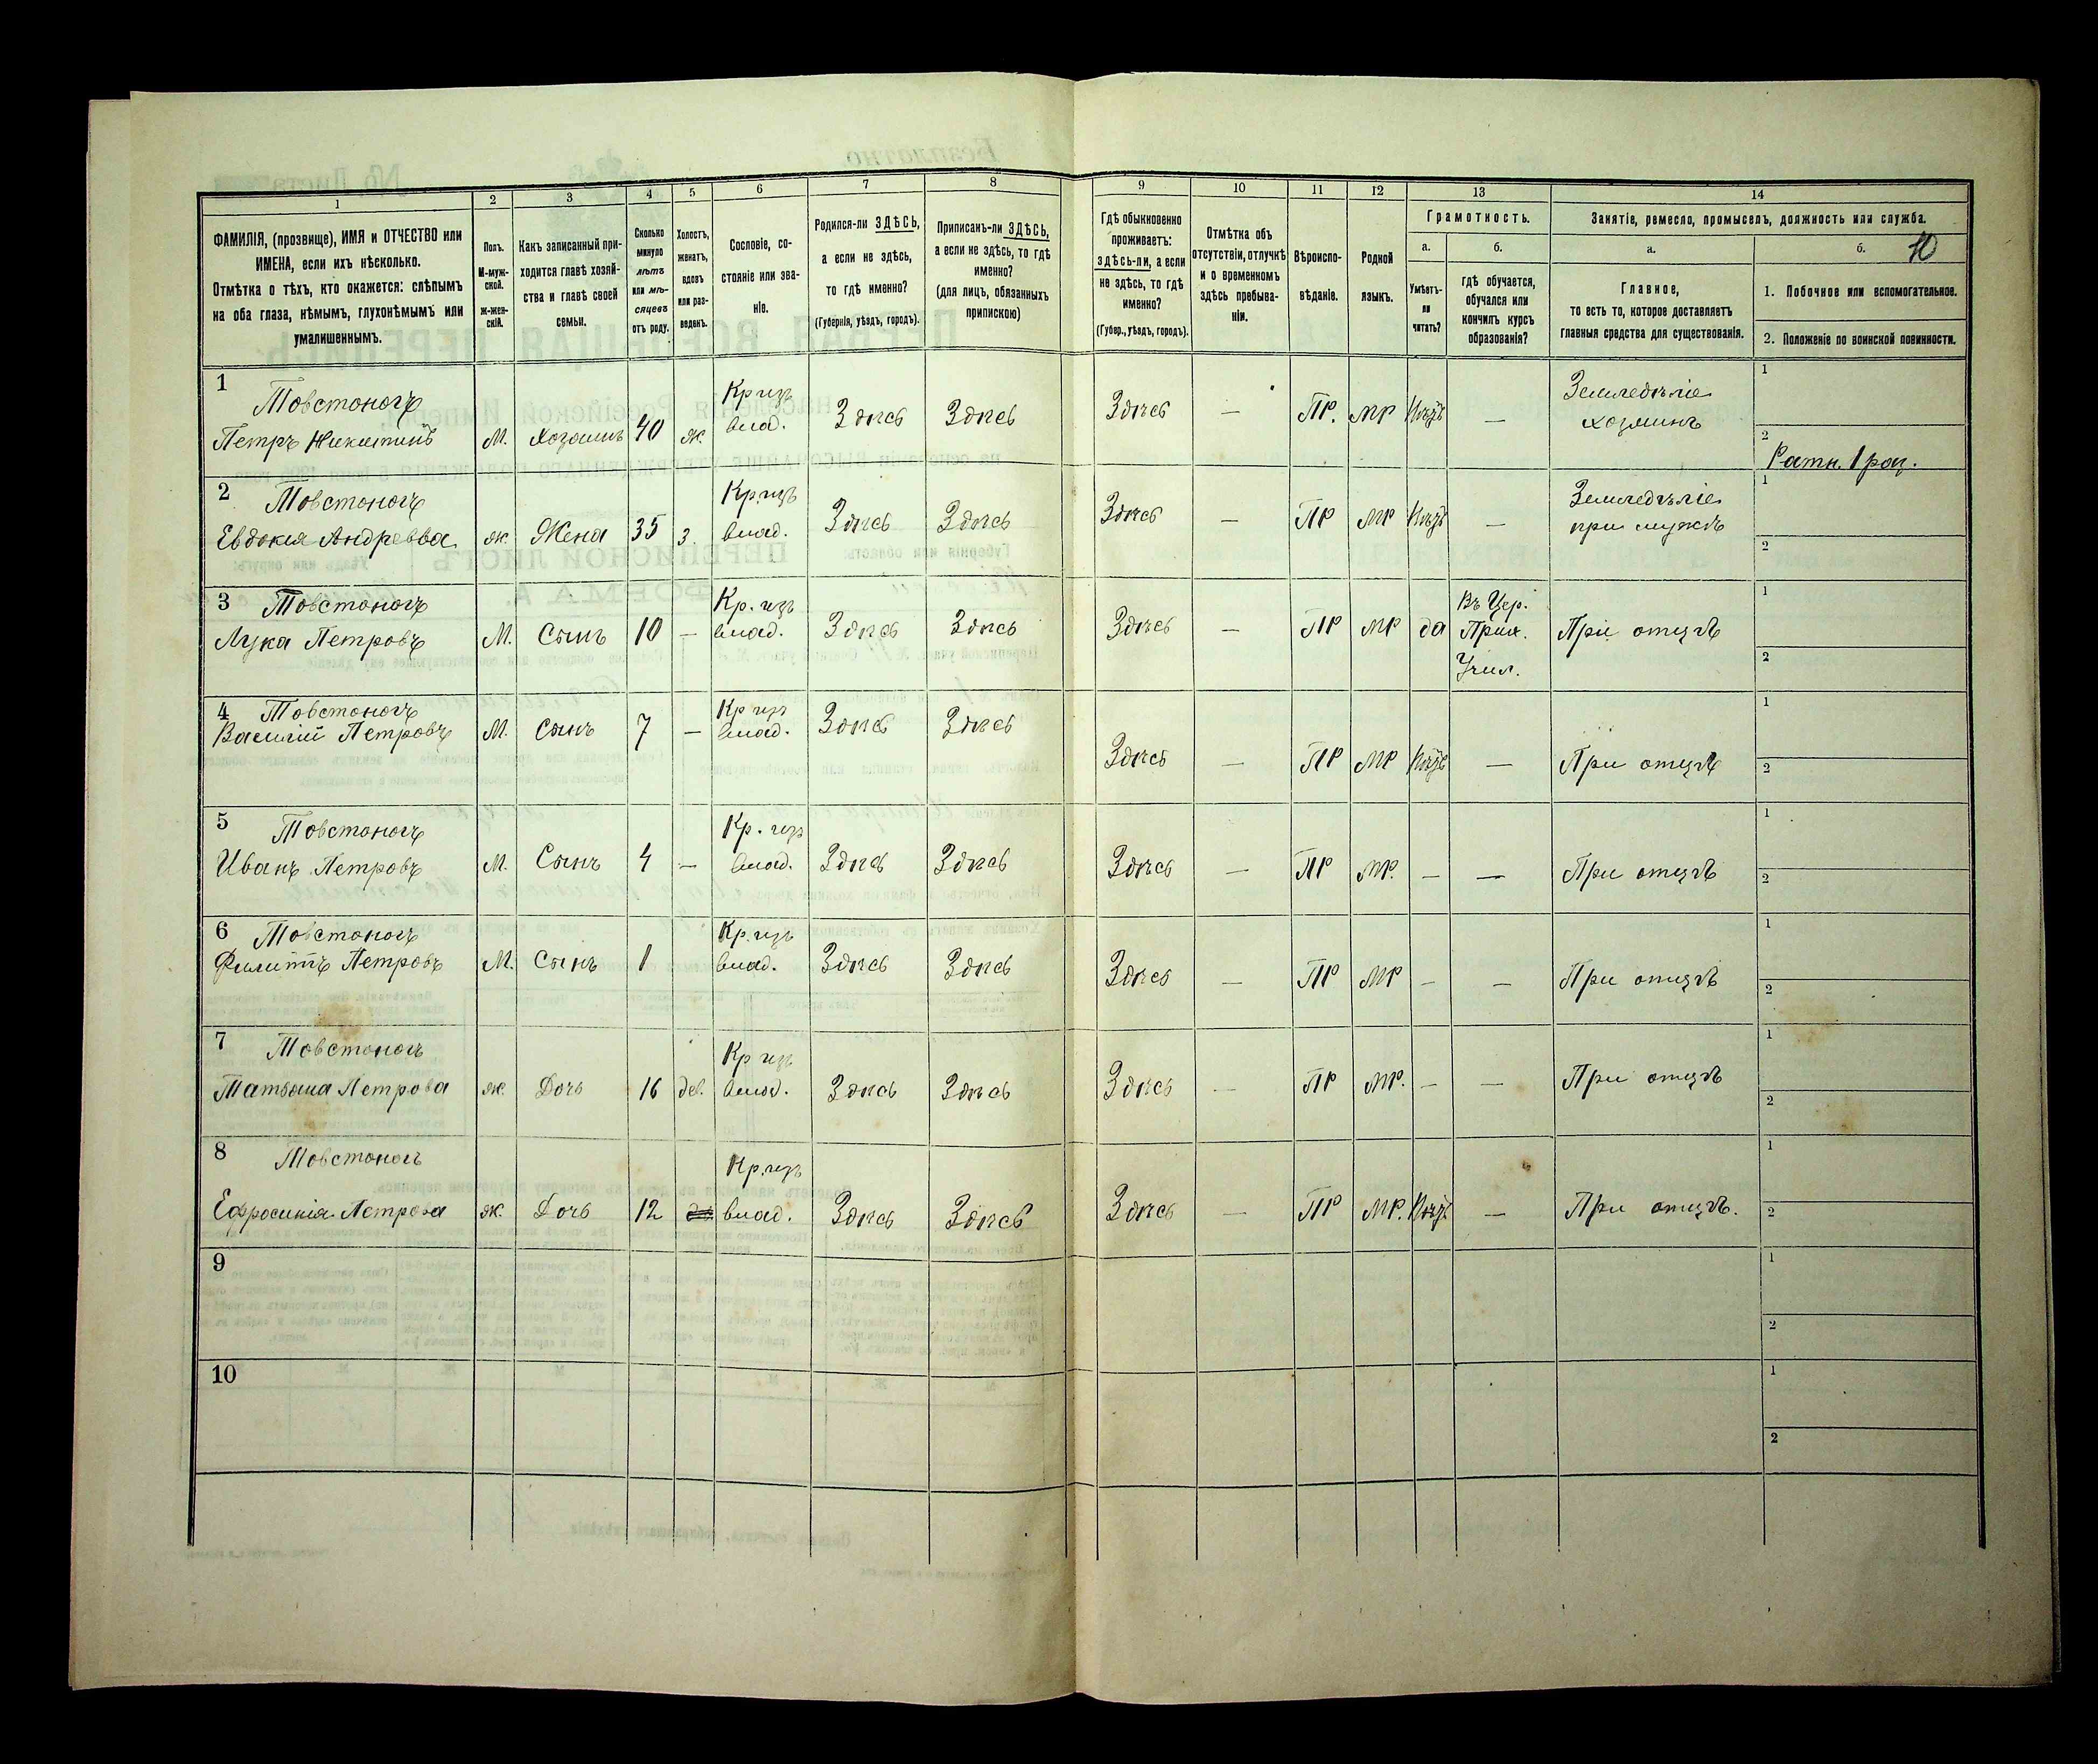 10
1
2
3
4
5
6
7
8
9
10
11
12
13
14
ФАМИЛІЯ, (прозвище), ИМЯ и ОТЧЕСТВО или
ИМЕНА, если ихъ нѣсколько.
Отмѣтка о тѣхъ, кто окажется: слѣпымъ
на оба глаза, нѣмымъ, глухонѣмымъ или
умалишеннымъ.
Полъ.
М-муж-
ской.
ж-жен-
скій.
Какъ записанный при-
ходится главѣ хозяй-
ства и главѣ своей
семьи.
Сколько
минуло
лѣтъ
или мѣ-
сяцевъ
отъ роду.
Холостъ,
женатъ,
вдовъ
или раз-
веденъ.
Сословіе, со-
стояніе или зва-
ніе.
Родился-ли ЗДѢСЬ,
а если не здѣсь,
то гдѣ именно?
(Губернія, уѣздъ, городъ).
Приписанъ-ли ЗДѢСЬ,
а если не здѣсь, то гдѣ
именно?
(для лицъ, обязанныхъ
припискою)
Гдѣ обыкновенно
проживаетъ:
здѣсь-ли, а если
не здѣсь, то гдѣ
именно?
(Губер., уѣздъ, городъ).
Отмѣтка объ
отсутствіи, отлучкѣ
и о временномъ
здѣсь пребыва-
ніи.
Вѣроиспо-
вѣданіе.
Родной
языкъ.
Грамотность.
а.
Умѣетъ-
ли
читать?
б.
гдѣ обучается,
обучался или
кончилъ курсъ
образованія?
Занятіе, ремесло, промыселъ, должность или служба.
а.
Главное,
то есть то, которое доставляетъ
главныя средства для существованія.
б.
1. Побочное или вспомогательное.
2. Положеніе по воинской повинности.
1
Товстоногъ
Петръ Никитинъ
М.
Хозяинъ
40
ж.
Кр изъ
влад.
Здѣсь
Здѣсь
Здѣсь
—
ПР.
МР
Нѣтъ
—
Земледѣліе
хозяинъ
1
2
Ратн. 1 раз.
2
Товстоногъ
Евдокия Андреева
ж.
Жена
35
з.
Кр.изъ
влад.
Здѣсь
Здѣсь
Здѣсь
—
ПР
МР
Нѣтъ
—
Земледѣліе
при мужѣ
1
2
3
Товстоногъ
Лука Петровъ
М.
Сынъ
10
—
Кр. изъ
влад.
Здѣсь
Здѣсь
Здѣсь
—
ПР
МР
да
Въ Цер.
Прих.
Учил.
При отцѣ
1
2
4
Товстоногъ
Василій Петровъ
М.
Сынъ
7
—
Кр изъ
влад.
Здѣсь
Здѣсь
Здѣсь
—
ПР
МР
Нѣтъ
—
При отцѣ
1
2
5
Товстоногъ
Иванъ Петровъ
М.
Сынъ
4
—
Кр. изъ
влад.
Здѣсь
Здѣсь
Здѣсь
—
ПР
МР.
—
—
При отцѣ
1
2
6
Товстоногъ
Филиппъ Петровъ
М.
Сынъ
1
Кр.изъ
влад.
Здѣсь
Здѣсь
Здѣсь
—
ПР
МР
—
—
При отцѣ
1
2
7
Товстоногъ
Татьяна Петрова
ж.
Дочь
16
дев.
Кр изъ
влад.
Здѣсь
Здѣсь
Здѣсь
—
ПР
МР.
—
—
При отцѣ
1
2
8
Товстоногъ
Ефросинія Петрова
ж.
Дочь
12
Кр.изъ
влад.
Здѣсь
Здѣсь
Здѣсь
—
ПР
МР.
Нѣтъ
—
При отцѣ.
1
2
9
1
2
10
1
2